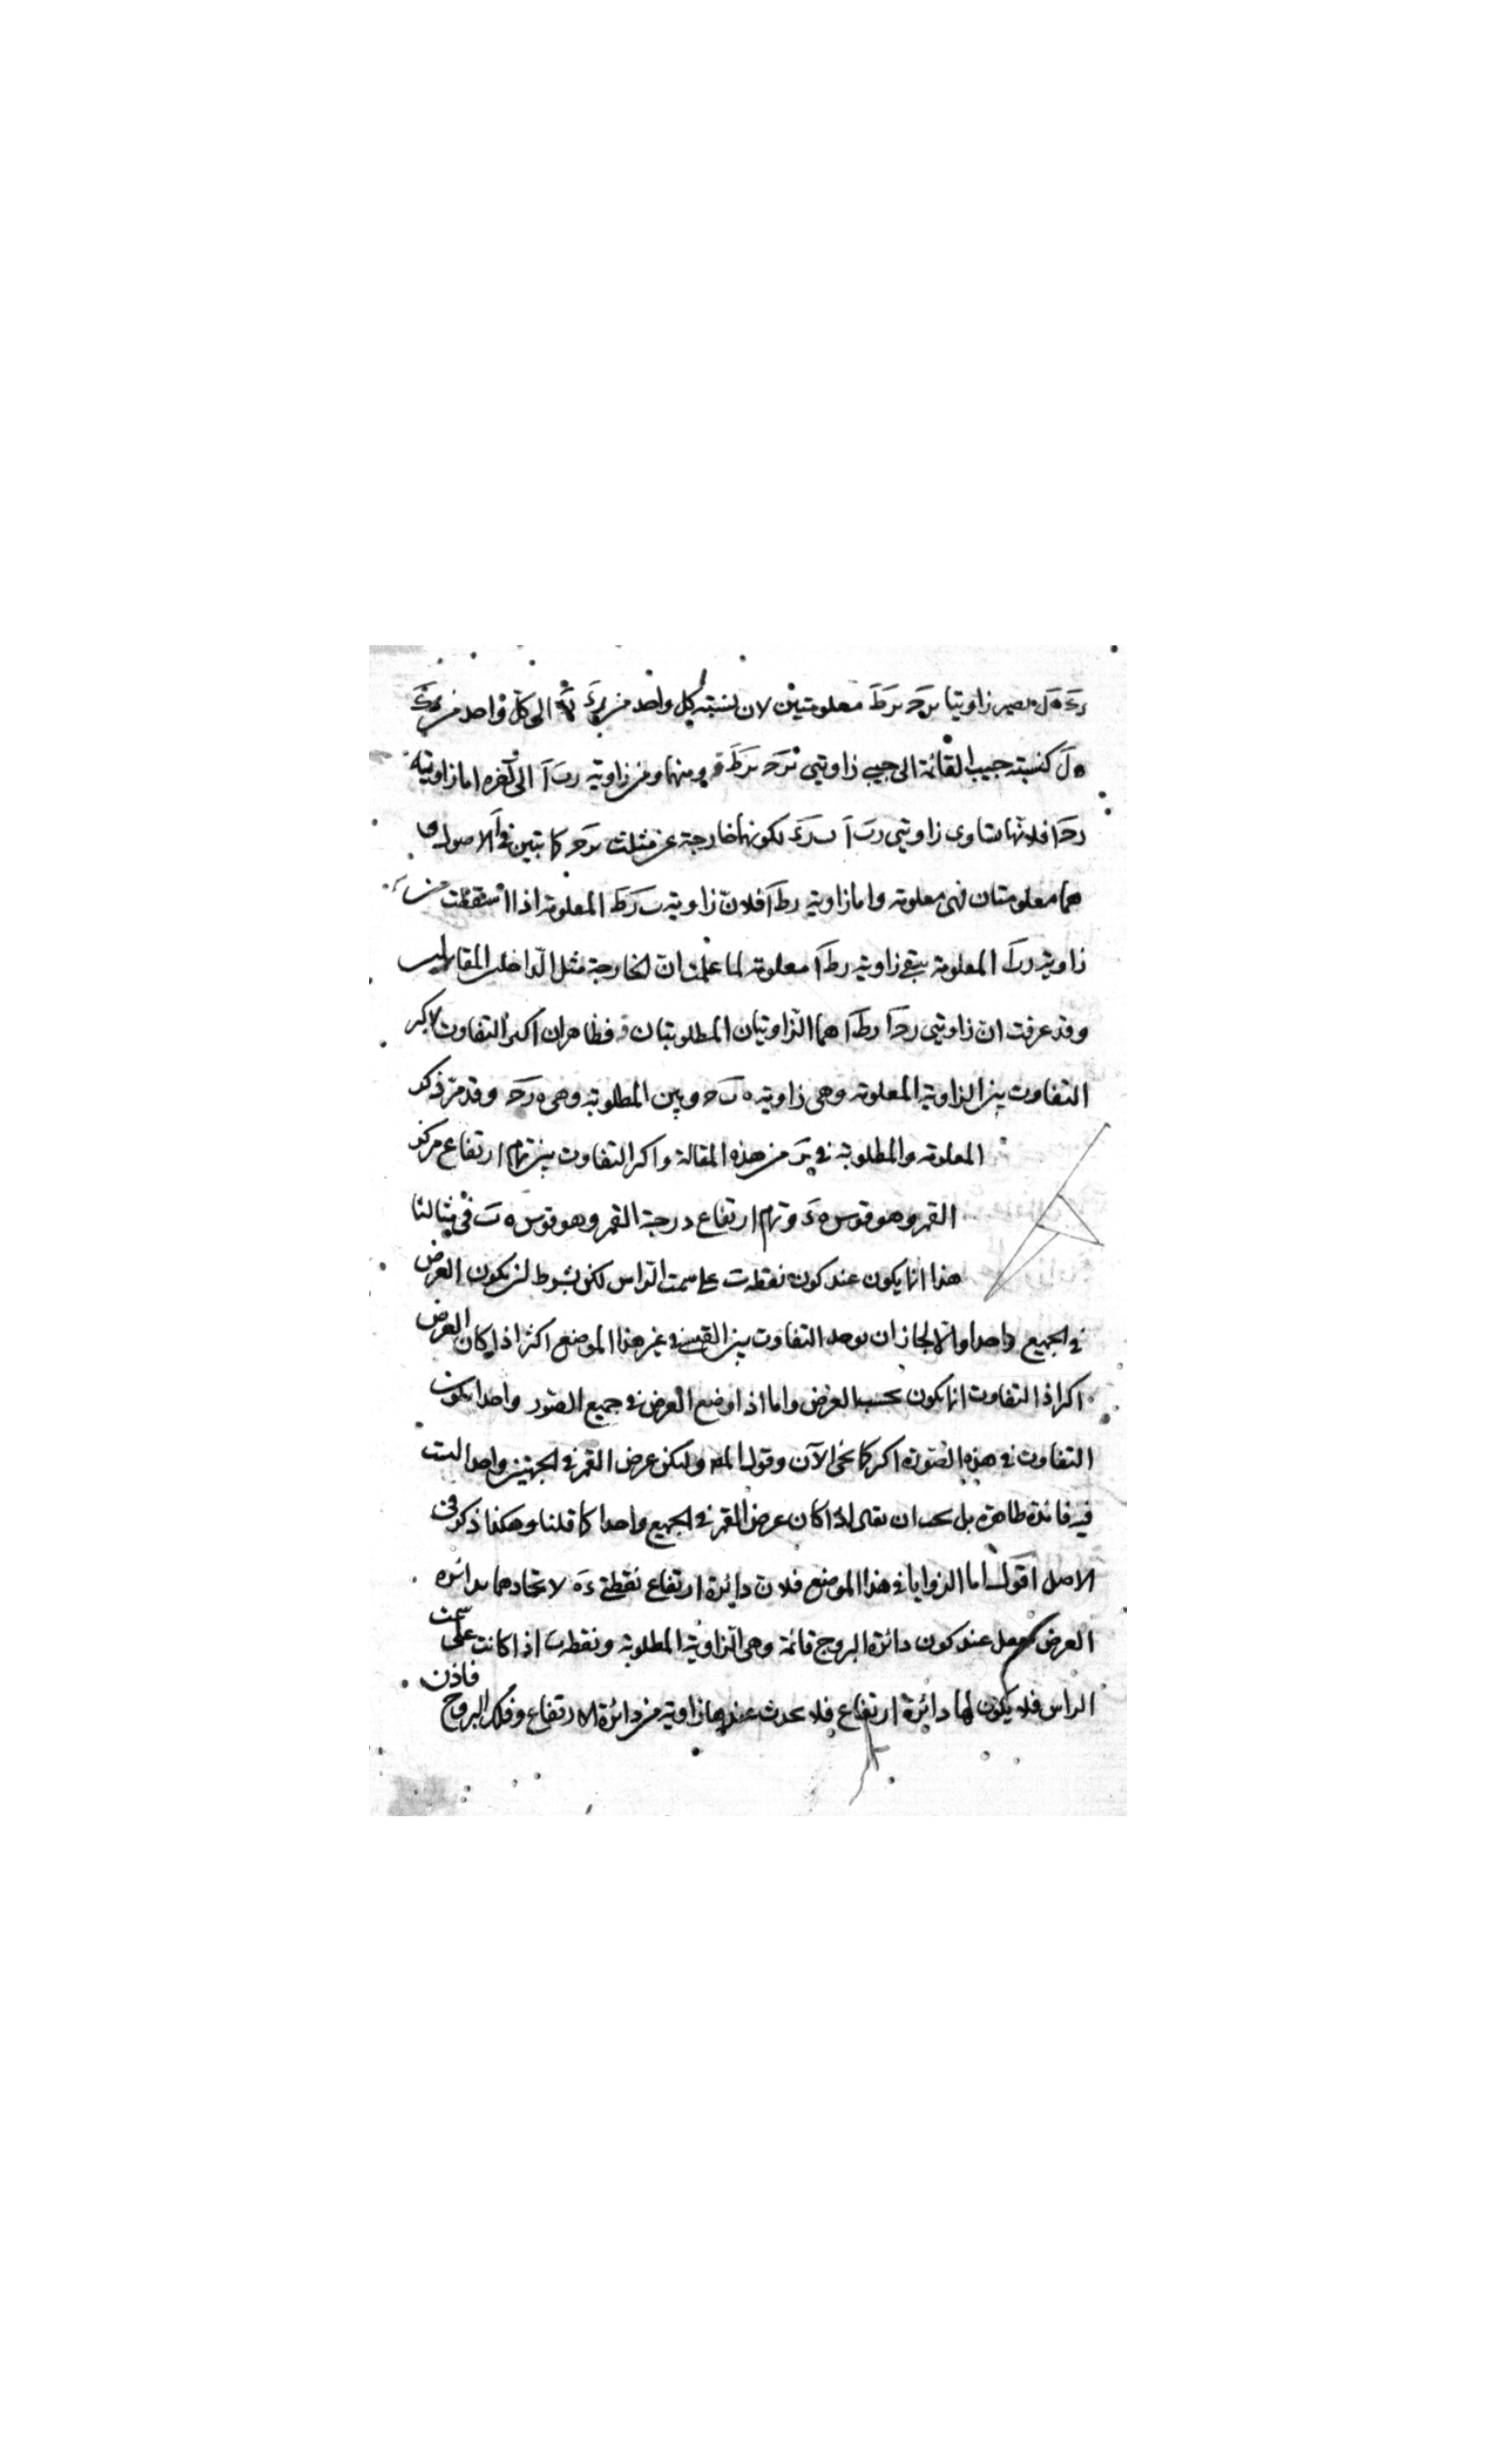 رءَ هَ لَ يصير زاويتا برَحَ برَطَ معلومتين لان نسبته كل واحد من برءَ الى كل واحد من
هَ لَ كنسبته جيب القائمة الى جيبى زاويتى برَحَ برَطَ ومنهما ومن زاويه ربَ آ الى آخره اما زاويته
رحَ ا فلانها تساوى زاويتى ربَ آ بَ رءَ لكونها خارجة عن مثلث برَحَ كما تبين فى الاصول
هما معلومتان فهى معلومه واما زاويه رطَ آ فلانّ زاويه بَ رَطَ المعلومه اذا اسقطت من
زاويه المعلومه يبقى زاويه رطَ آ معلومه لما علمت ان الخارجة مثل الداخلتين المقابلتين
وقد عرفت انّ زاويتى رحَ آ رطَ آ هما الزاويتان المطلوبتان فظاهر ان اكثر التفاوت
التفاوت بين الزاوية المعلومه وهى زاويه ه بَ حَ وبين المطلوبه وهى ه رَحَ وقد مرّ ذكر
المعلومه والمطلوبه فى من هذه المقالة واكثر التفاوت بين تمام ارتفاع مركز
القمر وهو قوس هَ ءَ وتمام ارتفاع درجة القمر وهو قوس ه بَ فى مثالنا
هذا انما يكون عند كون نقطه بَ على سمت الراس لكن بشرط ان يكون العرض
فى الجميع واحدا والا لجاز ان يوجد التفاوت بين القوسين فى غير هذا الموضع اكثر اذا كان العرض
اكثر اذ التفاوت انما يكون بحسب العرض واما اذا وضع العرض فى جميع الصور واحدا يكون
التفاوت فى هذه الصورة اكثر كما نحن الآن وقوله وليكن عرض القمر فى الجهتين واحدا ليست
فيه فائدة ظاهرة بل يجب ان يقال اذا كان عرض القمر فى الجميع واحدا كما قلنا وهكذا ذكر فى
الاصل اقول اما الزوايا فى هذا الموضع فلان دايرة ارتفاع نقطتى ءَ هَ لاتحادهما بدائره
العرض عند كون دائرة البروج قائمة وهى الزاوية المطلوبه ونقطه بَ اذا كانت على سمت
الراس فلا يكون لها دائرة ارتفاع فلا يحدث عندها زاويه من دائرة الارتفاع وفلك البروج فاذن